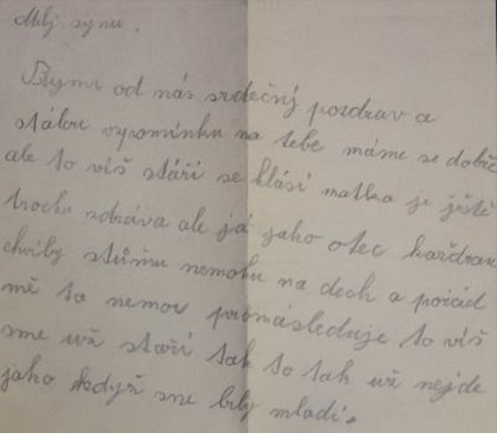 Milý synu,
Přymi od nás srdečný pozdrav a
stálou vzpomínku na tebe máme se dobře
ale to víš stáří se hlásí matka je ještě
trochu zdráva ale já jako otec každou
chvíly stůňu nemohu na dech a pořád
mě ta nemoc pronásleduje to víš
sme už staří tak to tak už nejde
jako když sme byly mladí.